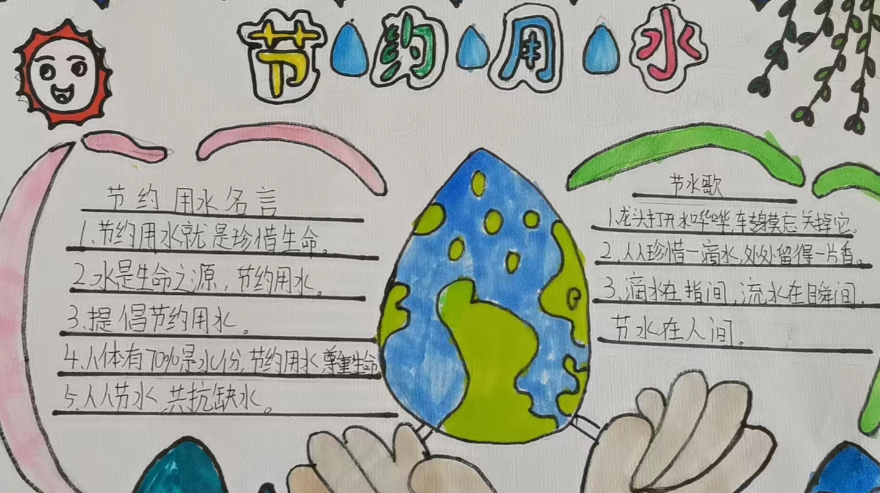 节约用水
节约用水名言
1.节约用水就是珍惜生命。
2.水是生命之源，节约用水。
3.提倡节约用水。
4.人体有70%是水份,节约用水尊重生命
5.人人节水，共抗缺水。
节水歌
1.龙头打开水哗哗,车身莫忘关掉它。
2.人人珍惜一滴水,处处留得一片香。
3.滴水在指间,流水在目瞬间,
节水在人间。